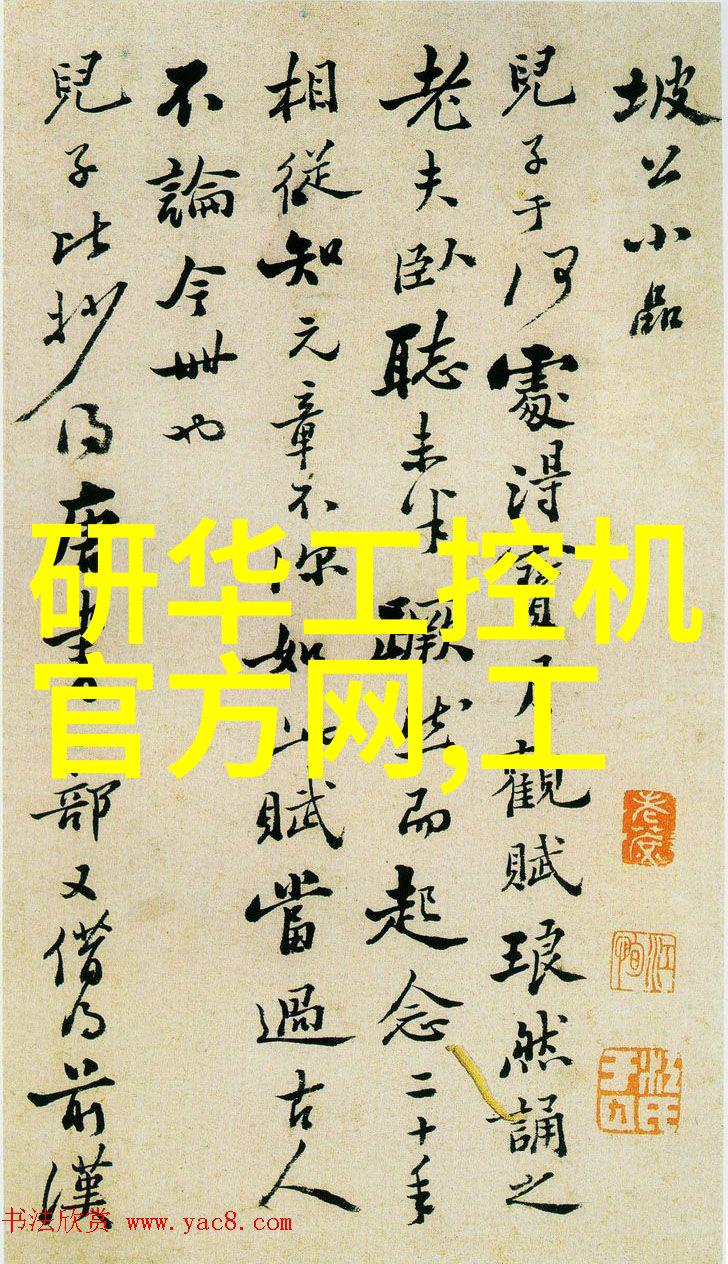 坡公小品
兒子于何處得寶月觀賦琅然誦之
老夫臥聽未半蹶然而起念二十年
相從知元章不深如此賦當過古人
不論今世也
兒子比抄得唐書一部又借得前漢
研华工控机
官方网,工
书法欣赏 www.yac8.com